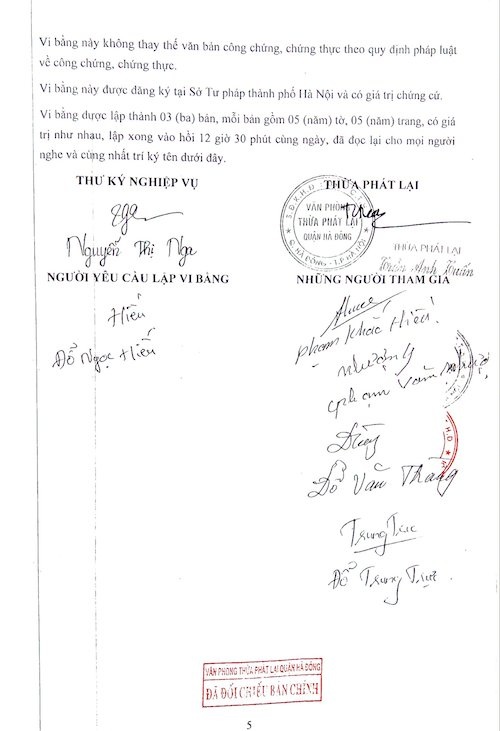 Vi bằng này không thay thế văn bản công chứng, chứng thực theo quy định pháp luật
về công chứng, chứng thực.
Vi bằng này được đăng ký tại Sở Tư pháp thành phố Hà Nội và có giá trị chứng cứ.
Vi bằng được lập thành 03 (ba) bản, mỗi bản gồm 05 (năm) tờ, 05 (năm) trang, có giá
trị như nhau, lập xong vào hồi 12 giờ 30 phút cùng ngày, đã đọc lại cho mọi người
nghe và cùng nhất trí ký tên dưới đây.
THƯ KÝ NGHIỆP VỤ
THỪA PHÁT LẠI
VĂN PHÒNG
THỪA PHÁT LẠI
QUẬN HÀ ĐÔNG
Q. HÀ ĐÔNG - T.P HÀ NỘI
Nguyễn Thị Nga
THỪA PHÁT LẠI
Trần Anh Tuấn
NGƯỜI YÊU CẦU LẬP VI BẰNG
NHỮNG NGƯỜI THAM GIA
Hiếu
Đỗ Ngọc Hiếu
Phạm Khắc Hiếu
Phạm Văn
Đỗ Văn Thăng
Trung Trực
Đỗ Trung Trực
VĂN PHÒNG THỪA PHÁT LẠI QUẬN HÀ ĐÔNG
ĐÃ ĐỐI CHIẾU BẢN CHÍNH
5